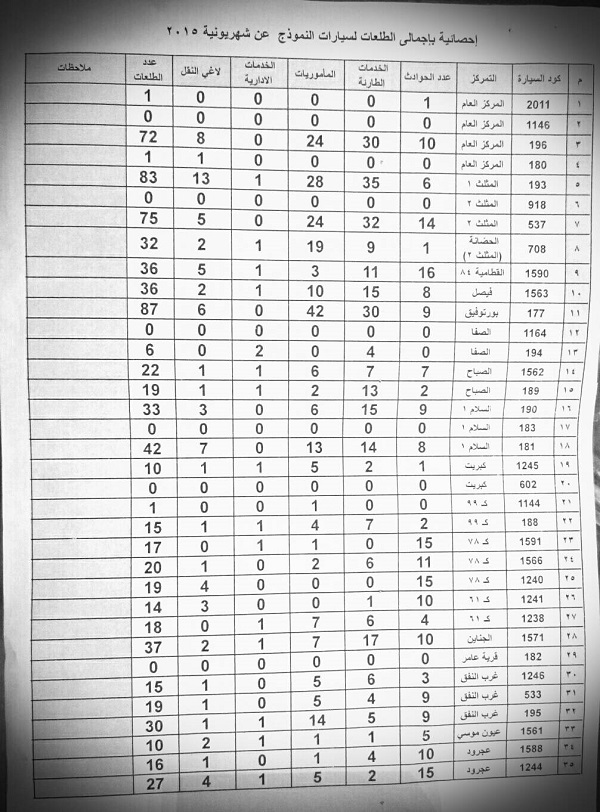 إحصائية بإجمالى الطلعات لسيارات النموذج عن شهريونية ٢٠١٥
م كود السيارة التمركز عدد الحوادث الخدمات الطارئة المأموريات الخدمات الادارية لاغي النقل عدد الطلعات ملاحظات
١ 2011 المركز العام 1 0 0 0 0 1
٢ 1146 المركز العام 0 0 0 0 0 0
٣ 196 المركز العام 10 30 24 0 8 72
٤ 180 المركز العام 0 0 0 0 1 1
٥ 193 المثلث ١ 6 35 28 1 13 83
٦ 918 المثلث ٢ 0 0 0 0 0 0
٧ 537 المثلث ٢ 14 32 24 0 5 75
٨ 708 الحضانة (المثلث ٢) 1 9 19 1 2 32
٩ 1590 القطامية ٨٤ 16 11 3 1 5 36
١٠ 1563 فيصل 8 15 10 1 2 36
١١ 177 بورتوفيق 9 30 42 0 6 87
١٢ 1164 الصفا 0 0 0 0 0 0
١٣ 194 الصفا 0 4 0 2 0 6
١٤ 1562 الصباح 7 7 6 1 1 22
١٥ 189 الصباح 2 13 2 1 1 19
١٦ 190 السلام ١ 9 15 6 0 3 33
١٧ 183 السلام ١ 0 0 0 0 0 0
١٨ 181 السلام ١ 8 14 13 0 7 42
١٩ 1245 كبريت 1 2 5 1 1 10
٢٠ 602 كبريت 0 0 0 0 0 0
٢١ 1144 كـ ٩٩ 0 0 1 0 0 1
٢٢ 188 كـ ٩٩ 2 7 4 1 1 15
٢٣ 1591 كـ ٧٨ 15 0 1 1 0 17
٢٤ 1566 كـ ٧٨ 11 6 2 0 1 20
٢٥ 1240 كـ ٧٨ 15 0 0 0 4 19
٢٦ 1241 كـ ٦١ 10 1 0 0 3 14
٢٧ 1238 كـ ٦١ 4 6 7 1 0 18
٢٨ 1571 الجناين 10 17 7 1 2 37
٢٩ 182 قرية عامر 0 0 0 0 0 0
٣٠ 1246 غرب النفق 3 6 5 0 1 15
٣١ 533 غرب النفق 9 4 5 0 1 19
٣٢ 195 غرب النفق 9 5 14 1 1 30
٣٣ 1561 عيون موسي 5 1 1 1 2 10
٣٤ 1588 عجرود 10 4 1 0 1 16
٣٥ 1244 عجرود 15 2 5 1 4 27